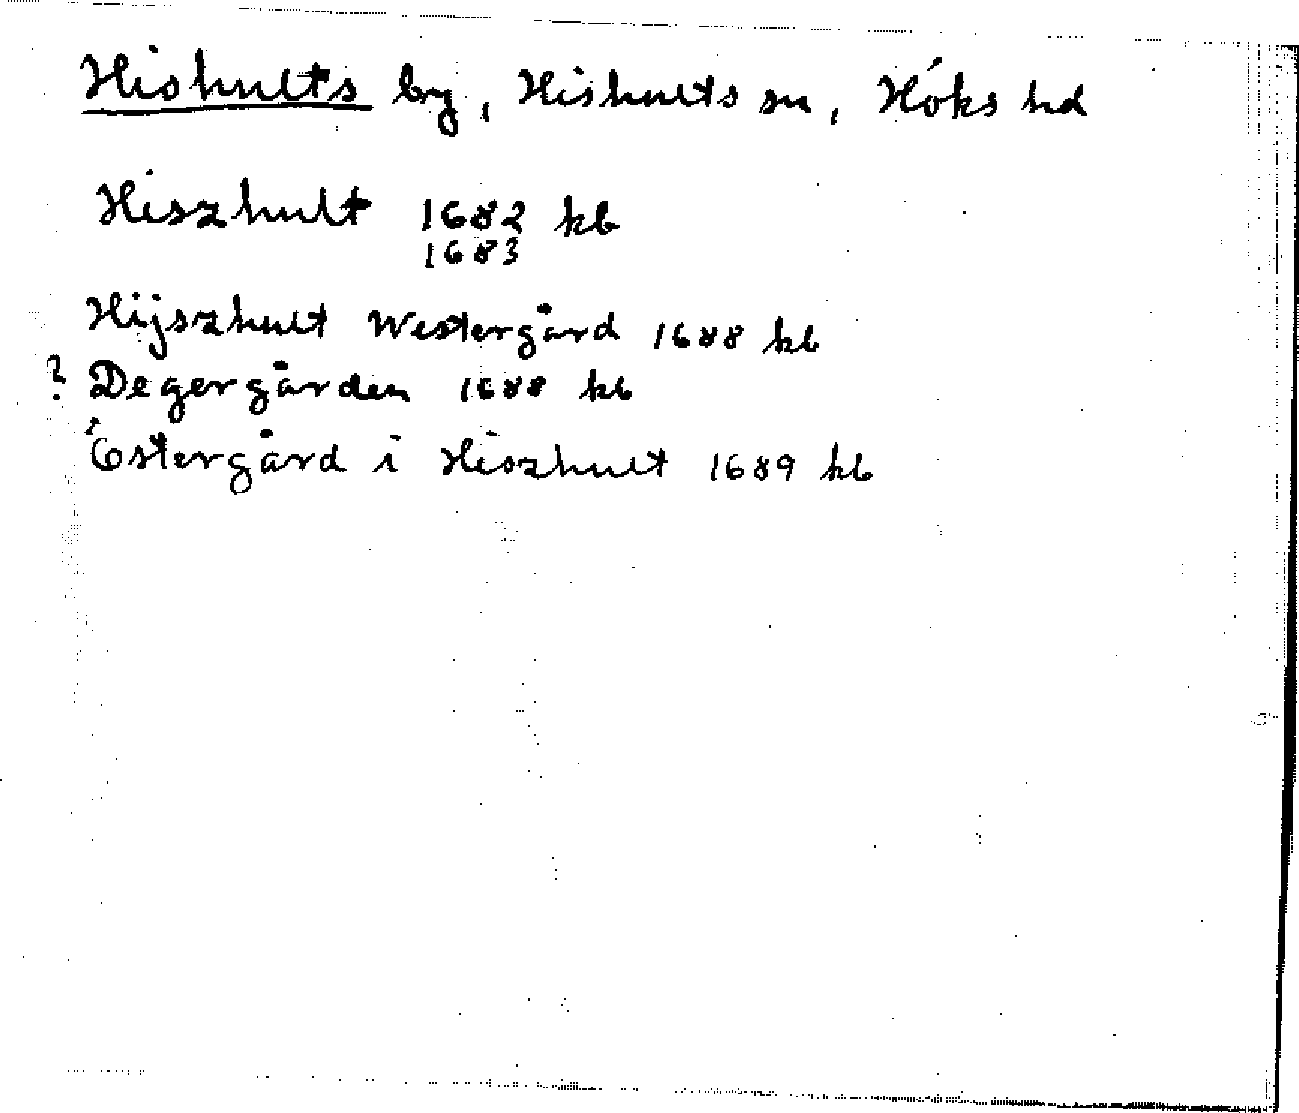 Hishults by, Hishults sn, Höks hd
Hiszhult 1682 kb
1683
Hijszhult Westergård 1688 kb
? Degergården 1688 kb
Östergård i Hiszhult 1689 kb